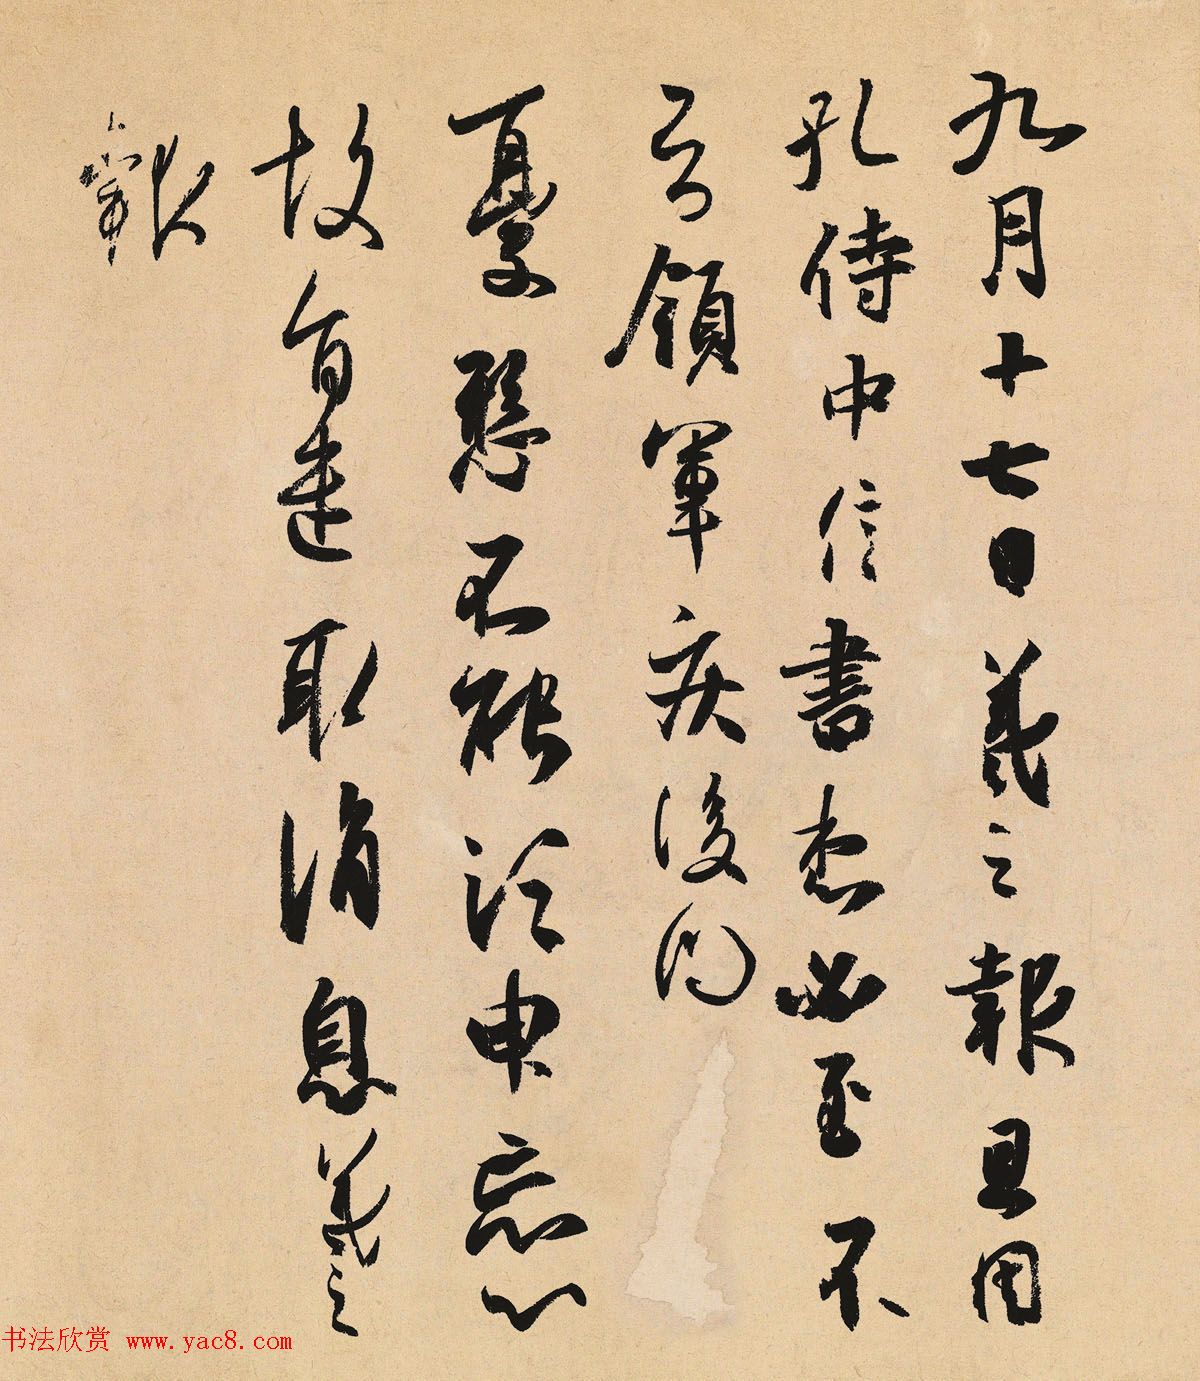 九月十七日羲之報且因
孔侍中信書想必至不
知領軍疾後問
憂懸不能須臾忘心
故旨遣取消息羲之
報
书法欣赏 www.yac8.com